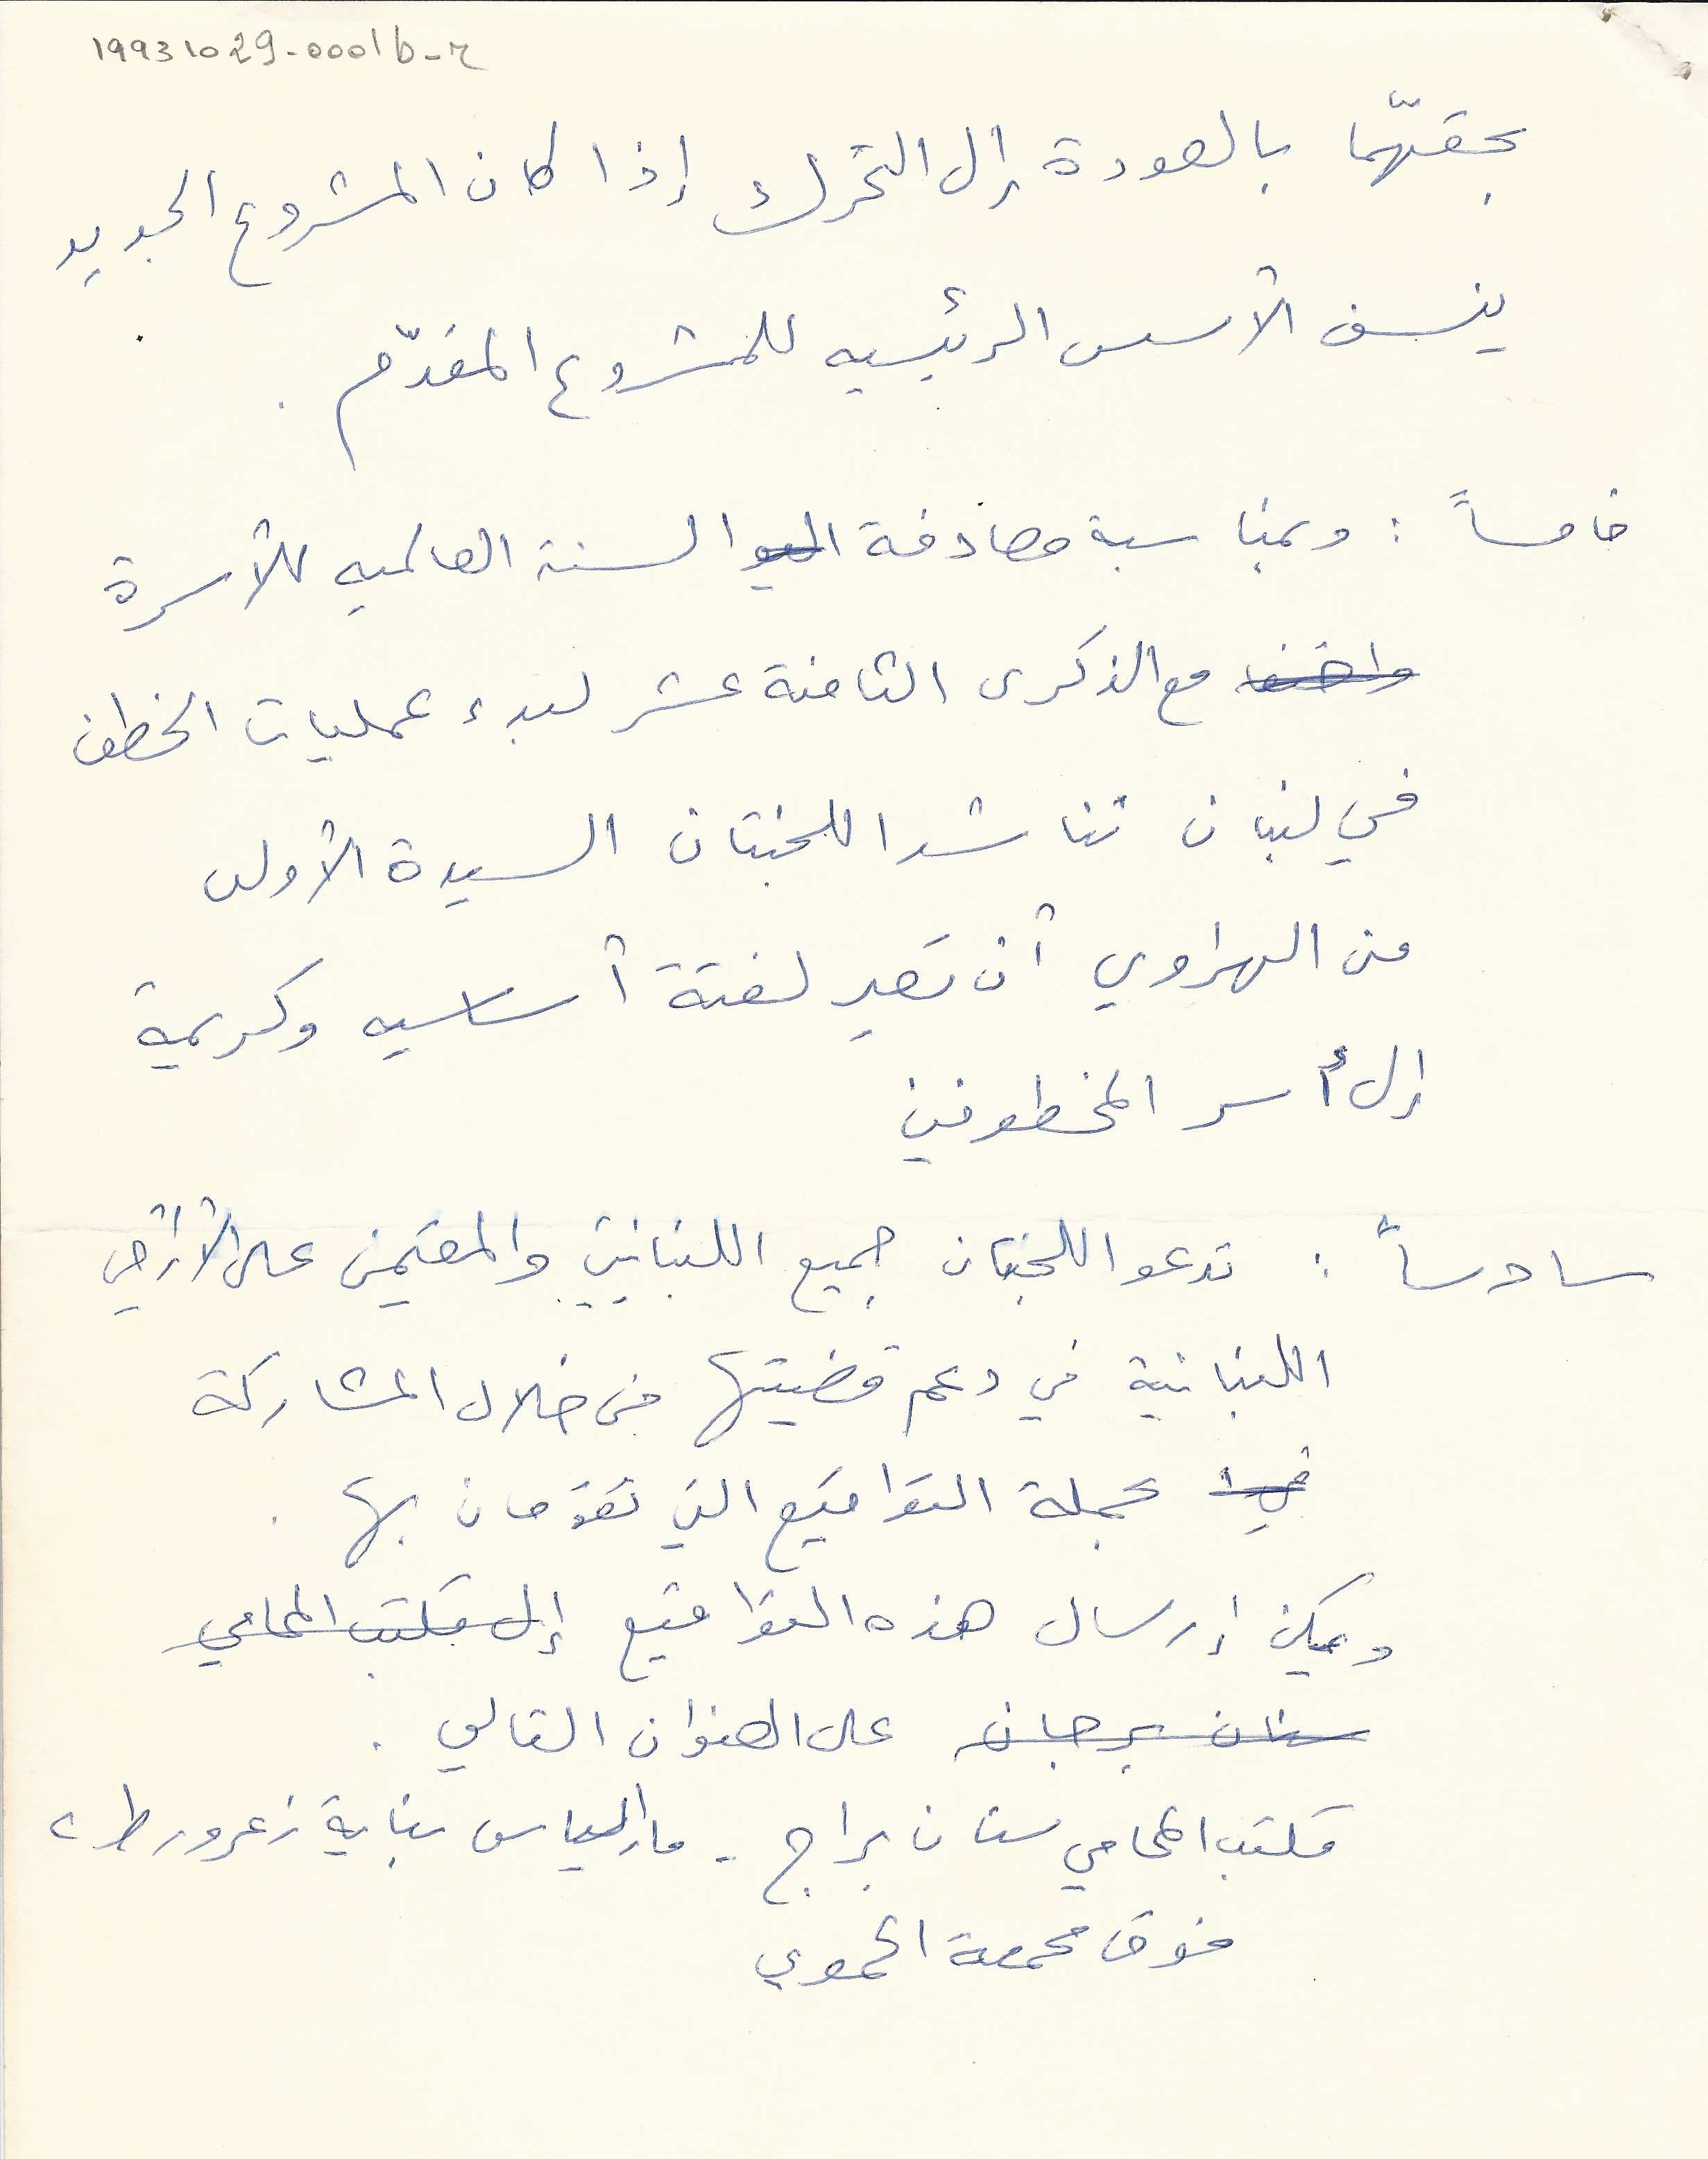 19931029-0001b-r
بحقهّما بالعودة إلى التحرك إذا كان المشروع الجديد
ينسف الأسس الرئيسيه للمشروع المقدّم .
خامساً : وبمناسبة مصادفة السنة العالميه للأسرة
مع الذكرى الثامنة عشر لبدء عمليات الخطف
في لبنان تناشد اللجنتان السيدة الأولى
منى الهراوي أن تعير لفتة أساسيه وكريمة
إلى أسر المخطوفين
سادساً : تدعو اللجنتان جميع اللبنانيين والمقيمين على الأراضي
اللبنانية في دعم قضيتها من خلال المشاركة
في حملة التواقيع التي تقومان بها .
ويمكن إرسال هذه التواقيع إلى مكتب المحامي
سنان على العنوان التالي .
مكتب المحامي سنان براج - مار الياس بناية زعرور ط ٢
فوق محمصة الحموي